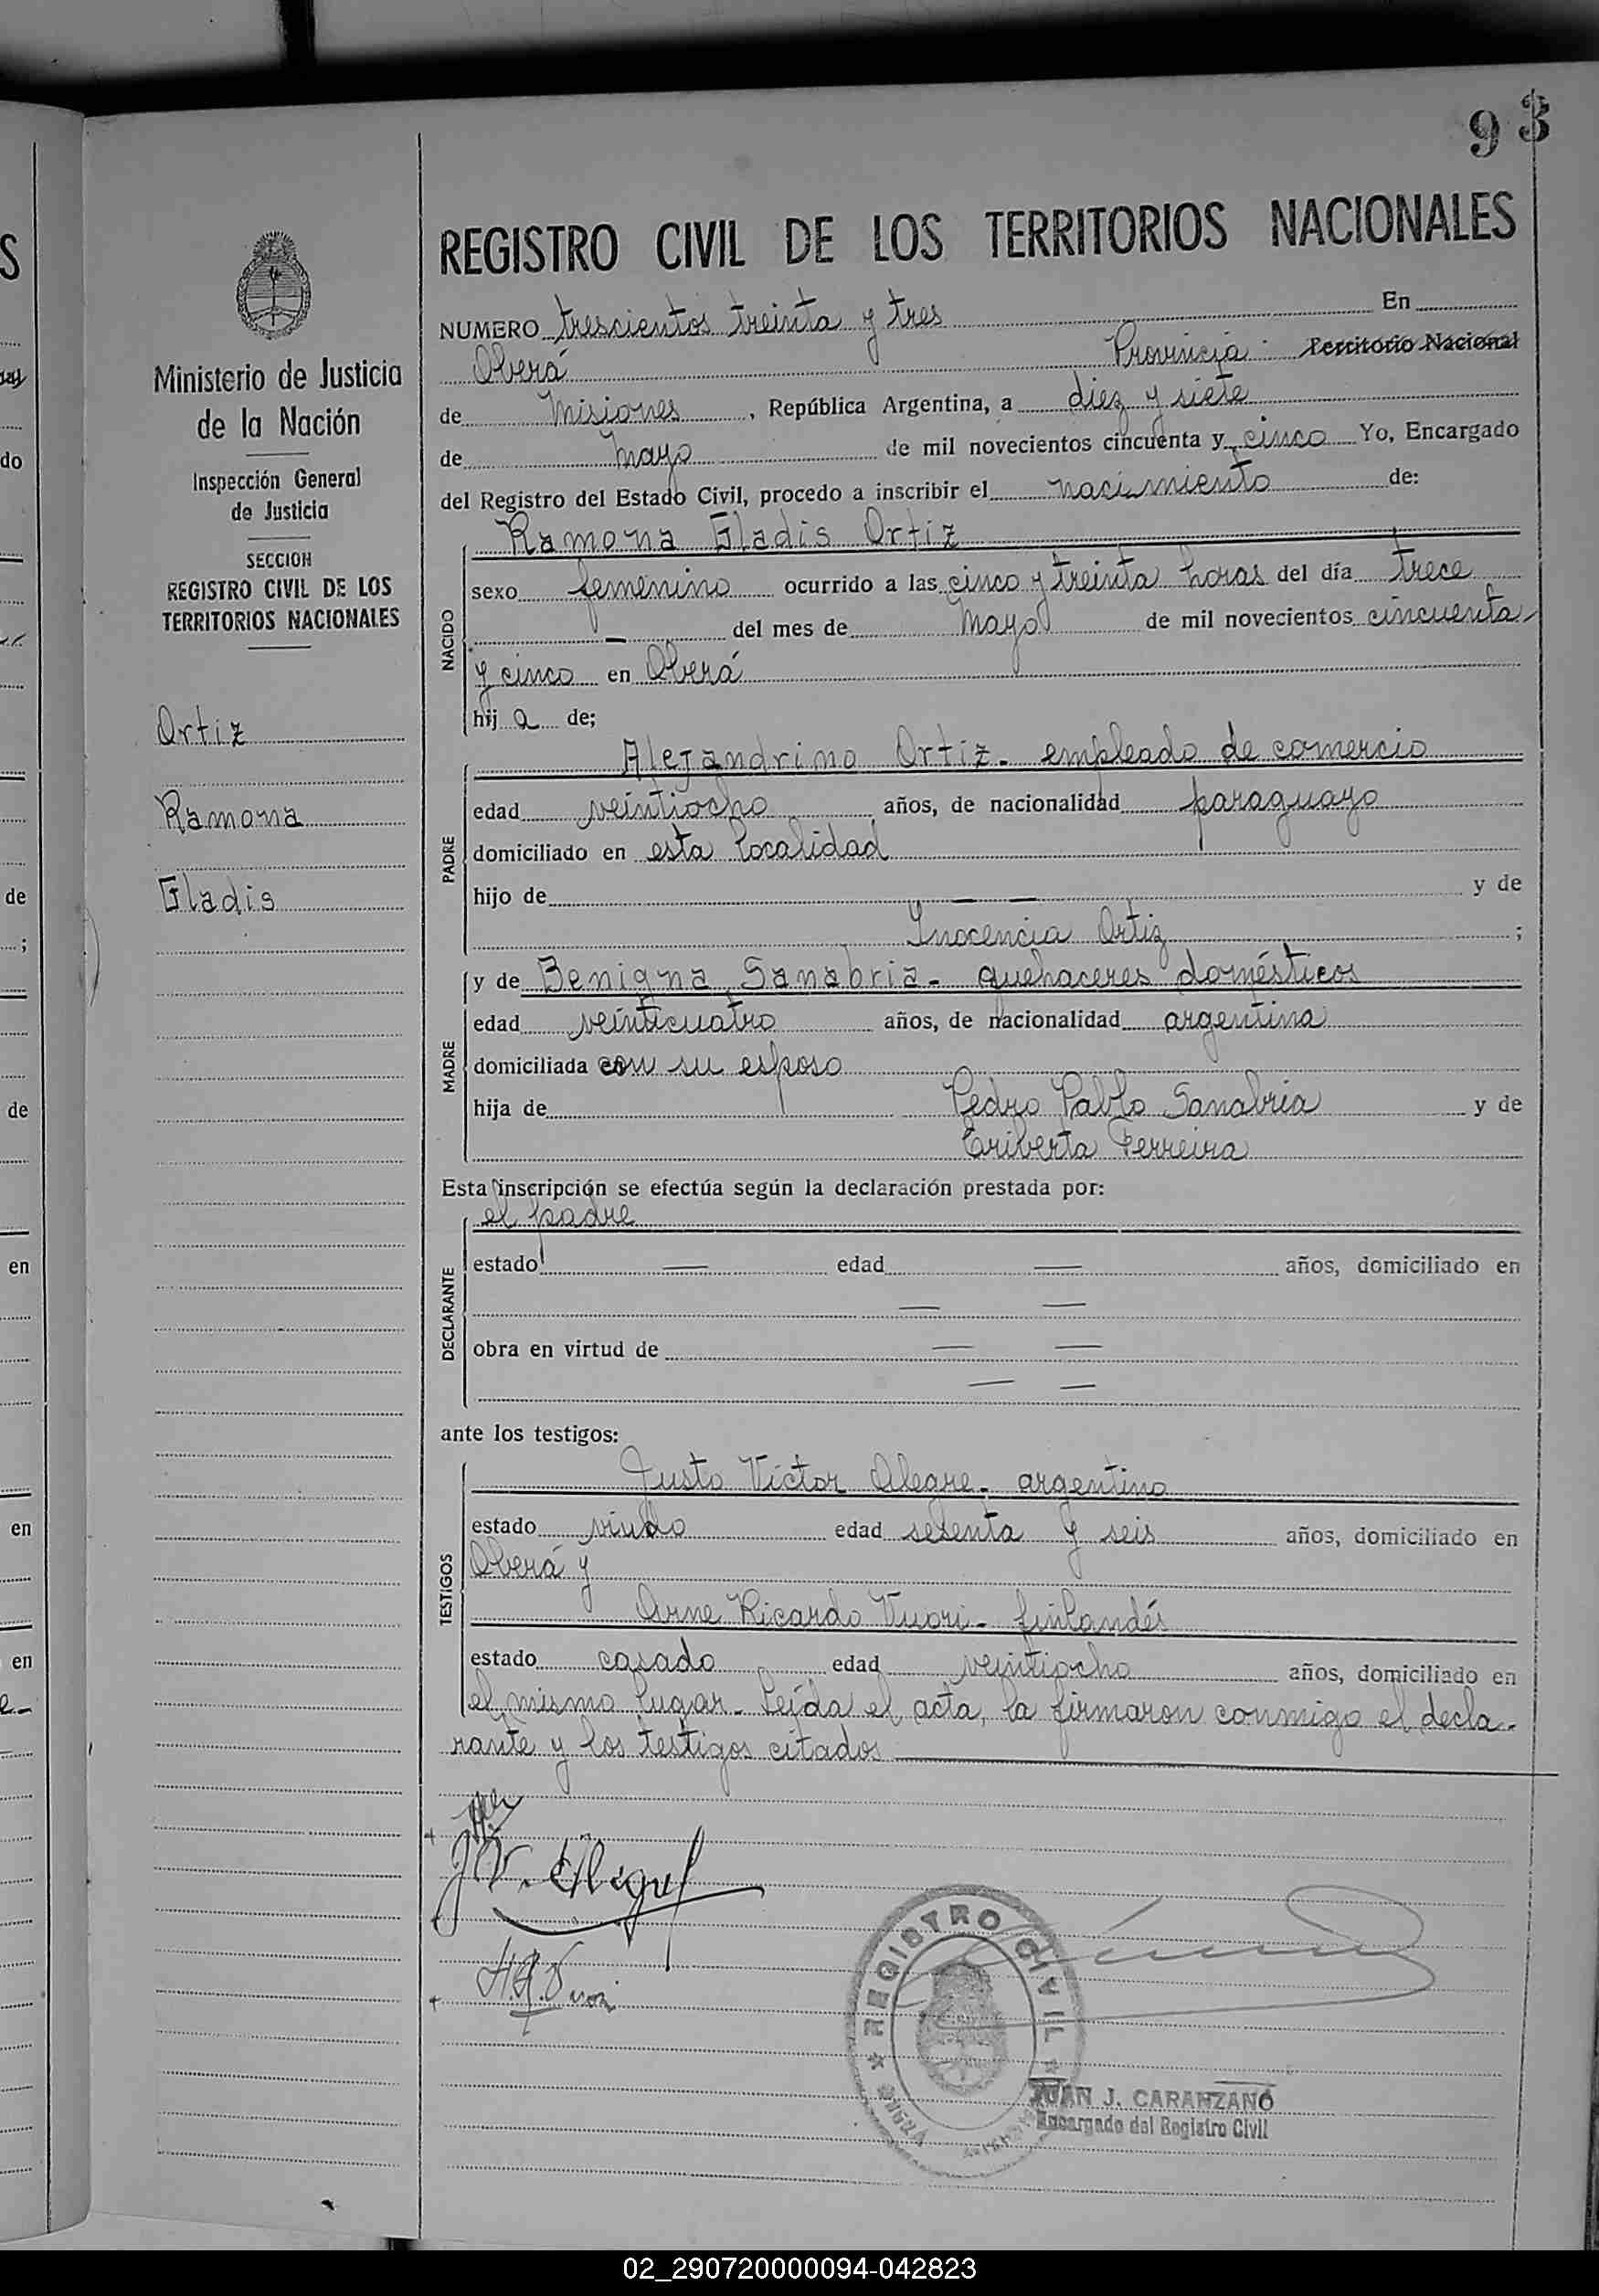 93
REGISTRO CIVIL DE LOS TERRITORIOS NACIONALES
Ministerio de Justicia
de la Nación
Inspección General
de Justicia
SECCION
REGISTRO CIVIL DE LOS
TERRITORIOS NACIONALES
Ortiz
Ramona
Gladis
NUMERO trescientos treinta y tres En
Oberá Provincia Territorio Nacional
de Misiones, República Argentina, a diez y siete
de Mayo de mil novecientos cincuenta y cinco Yo, Encargado
del Registro del Estado Civil, procedo a inscribir el nacimiento de:
NACIDO
Ramona Gladis Ortiz
sexo femenino ocurrido a las cinco y treinta horas del día trece
— del mes de Mayo de mil novecientos cincuenta
y cinco en Oberá
hija de;
PADRE
Alejandrino Ortiz - empleado de comercio
edad veintiocho años, de nacionalidad paraguayo
domiciliado en esta localidad
hijo de — — y de
Inocencia Ortiz ;
MADRE
y de Benigna Sanabria - quehaceres domésticos
edad veinticuatro años, de nacionalidad argentina
domiciliada con su esposo
hija de Pedro Pablo Sanabria y de
Eriberta Ferreira
Esta inscripción se efectúa según la declaración prestada por:
DECLARANTE
el padre
estado — edad — años, domiciliado en
— —
obra en virtud de — —
— —
ante los testigos:
TESTIGOS
Justo Victor Alegre - argentino
estado viudo edad sesenta y seis años, domiciliado en
Oberá y
Arne Ricardo Vuori - finlandés
estado casado edad veintiocho años, domiciliado en
el mismo lugar - Leída el acta, la firmaron conmigo el decla-
rante y los testigos citados
REGISTRO CIVIL
JUAN J. CARANZANO
Encargado del Registro Civil
S
do
de
;
de
en
en
en
02_290720000094-042823